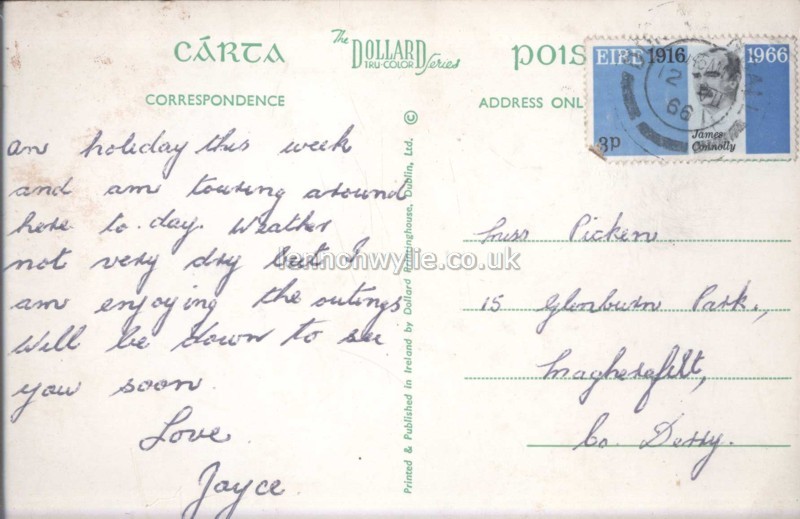 CÁRTA
The DOLLARD TRU-COLOR Series
POIS
CORRESPONDENCE
ADDRESS ONL
EIRE 1916 1966
3p
James
Connolly
12
66
am holiday this week
and am touring around
here to-day. Weather
not very dry but I
am enjoying the outings
Will be down to see
you soon.
Love.
Joyce.
Printed & Published in Ireland by Dollard Printinghouse, Dublin, Ltd. ©
Miss Picken
15 Glenburn Park.,
Magherafelt,
Co. Derry.
lennonwylie.co.uk